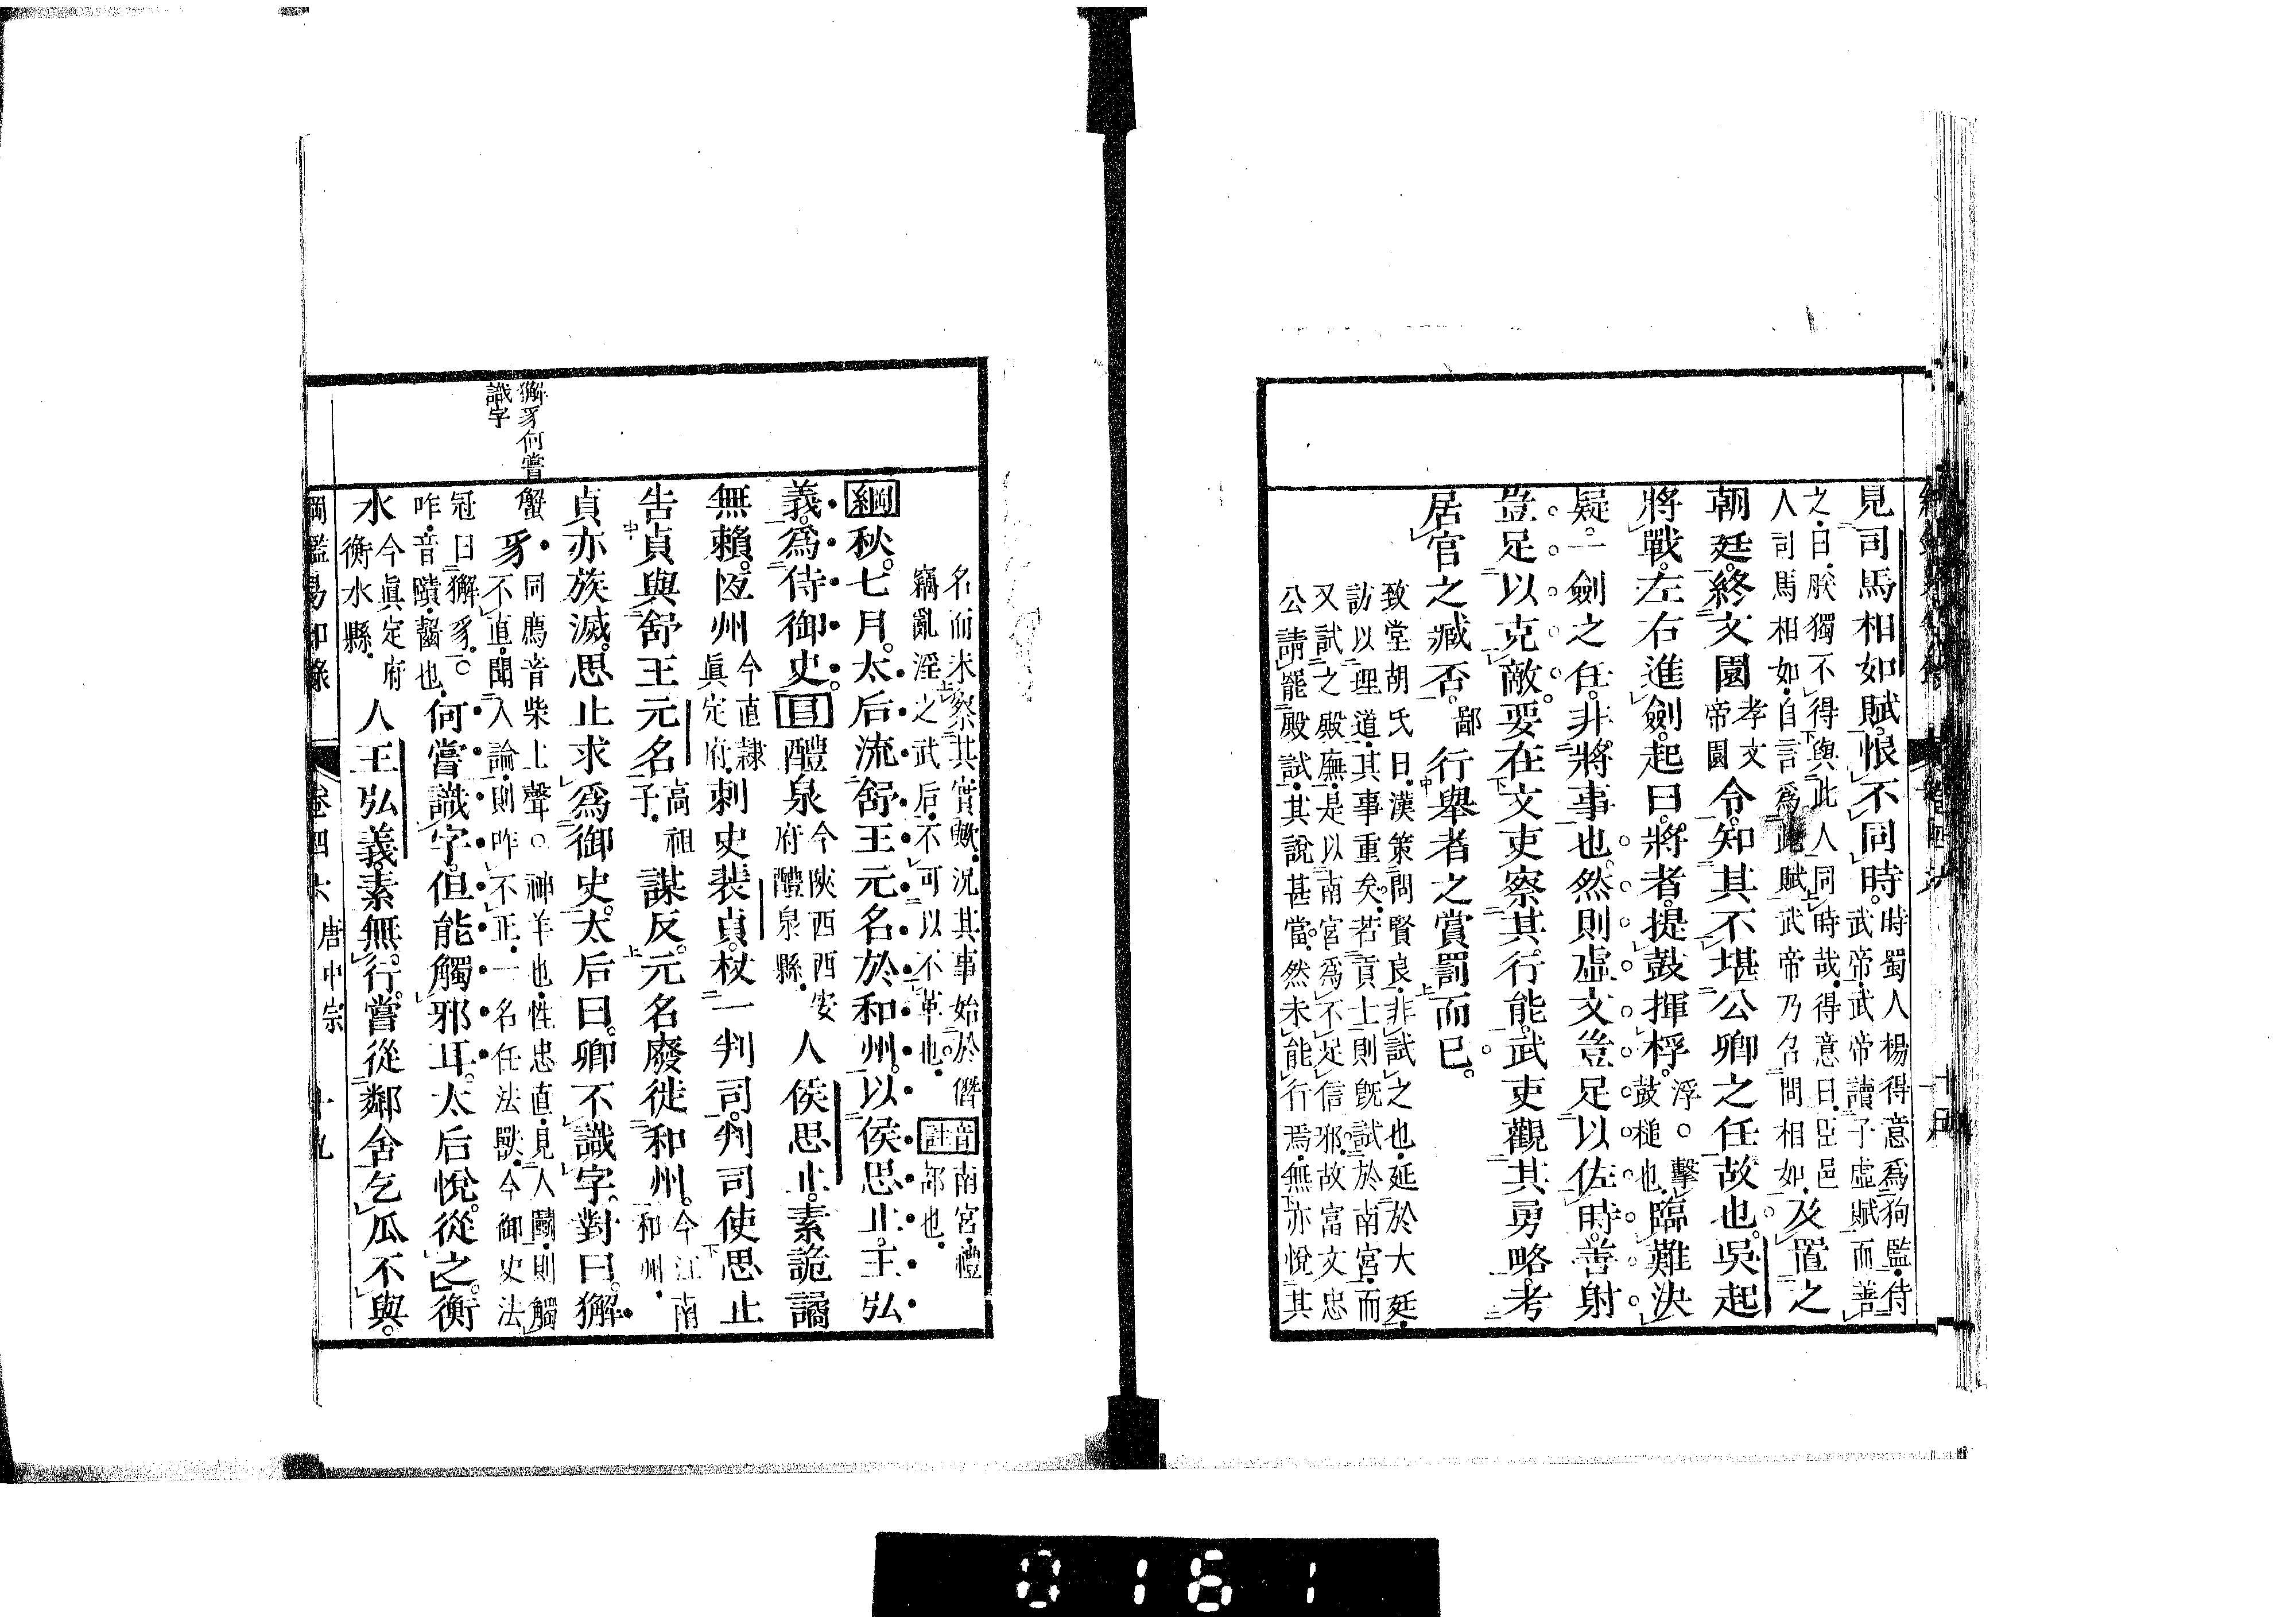 見司馬相如賦。恨不同時。時蜀人楊得意爲狗監。侍
武帝。武帝讀子虛賦而善
之。曰。朕獨不得與此人同時哉。得意曰。臣邑
人司馬相如。自言爲此賦。武帝乃召問相如。及置之
朝廷。終文園孝文
帝園令。知其不堪公卿之任故也。吳起
將戰。左右進劍。起曰。將者。提鼓揮桴。浮。○擊
鼓槌也。臨難決
疑。一劍之任。非將事也。然則虛文豈足以佐時。善射
豈足以克敵。要在文吏察其行能。武吏觀其勇略。考
居官之臧否。鄙行舉者之賞罰而已。
致堂胡氏曰。漢策問賢良。非試之也。延於大廷。
訪以理道。其事重矣。若貢士。則旣試於南宮。而
又試之殿廡。是以南宮爲不足信邪。故富文忠
公請罷殿試。其說甚當。然未能行焉。無亦悅其
名而未察其實歟。況其事始於僭
竊亂淫之武后。不可以不革也。音註南宮。禮
部也。
綱秋。七月。太后流舒王元名於和州。以侯思止。王弘
義。爲侍御史。目醴泉今陝西西安
府醴泉縣。人侯思止。素詭譎
無賴。恆州今直隸
眞定府。刺史裴貞。杖一判司。判司使思止
告貞與舒王元名高祖
子。謀反。元名廢徙和州。今江南
和州。
貞亦族滅。思止求爲御史。太后曰。卿不識字。對曰。獬
蟹豸同廌音柴上聲。○神羊也。性忠直。見人鬬。則觸
不直。聞人論。則咋不正。一名任法獸。今御史法
冠曰獬豸。○
咋。音賾。齧也。何嘗識字。但能觸邪耳。太后悅。從之。衡
水今眞定府
衡水縣。人王弘義素無行。嘗從鄰舍乞瓜不與。
獬豸何嘗
識字
綱鑑易知錄
卷四六 唐中宗
十九